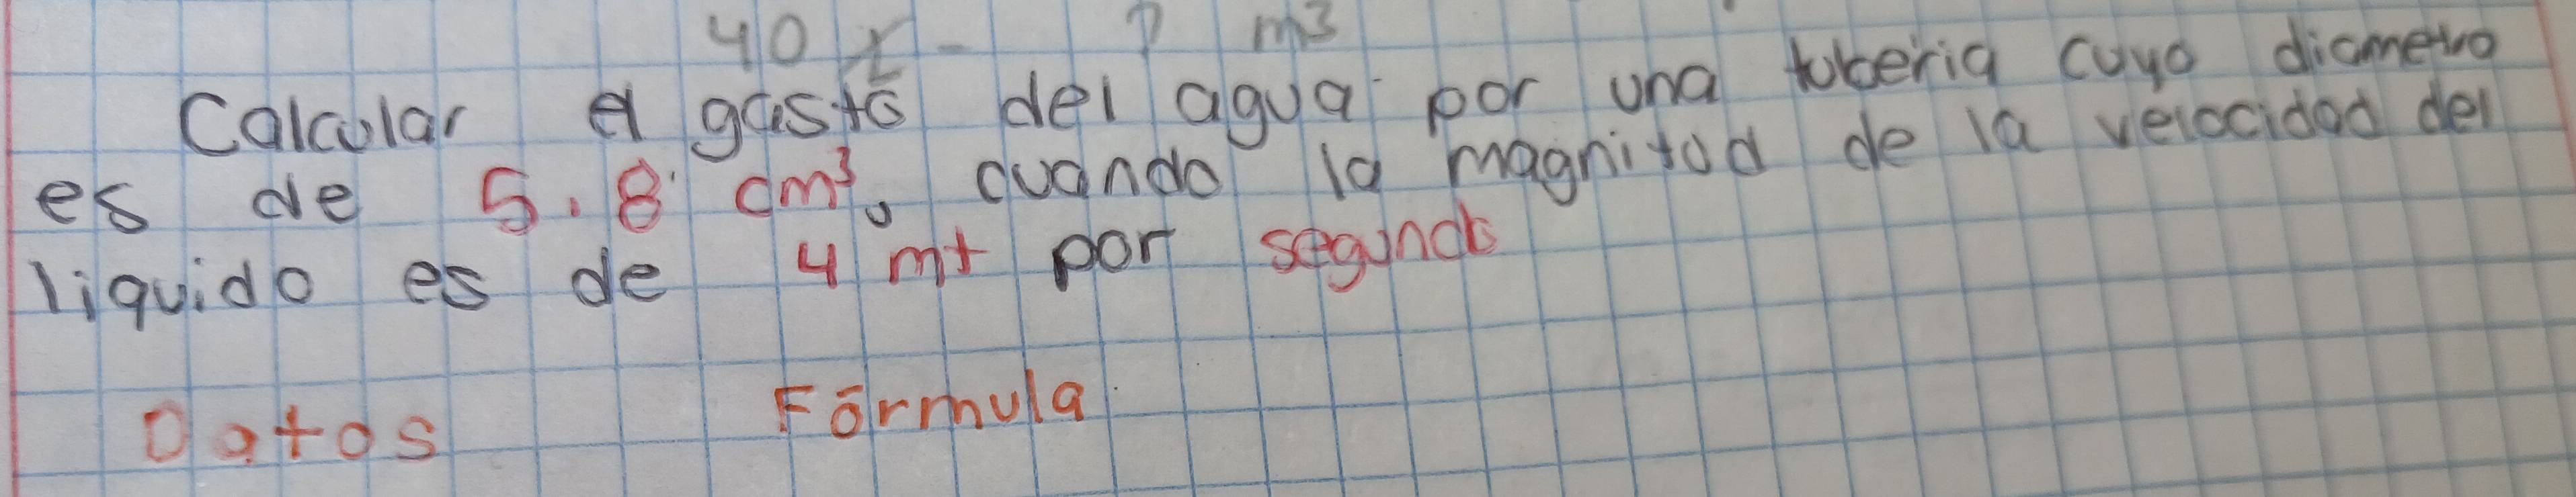 40 - ? m³
Calcular el gasto del agua por una tuberia cuyo diametro
es de 5.8 cm³, cuando la magnitud de la velocidad del
liquido es de 4 mt por segundo
Datos Fórmula